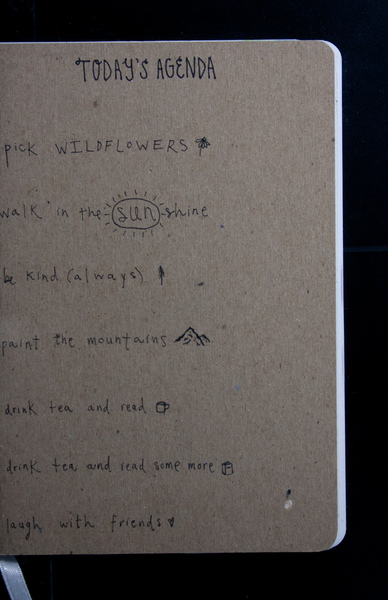 TODAY'S AGENDA
pick WILDFLOWERS
walk in the sun shine
be kind (always)
paint the mountains
drink tea and read
drink tea and read some more
laugh with friends